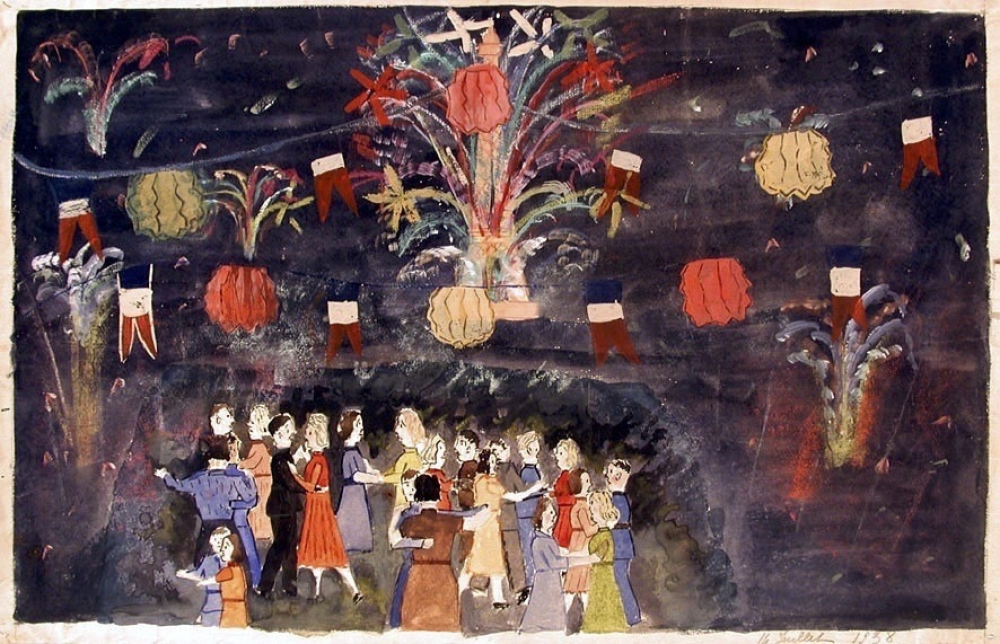 16 Juillet 1938